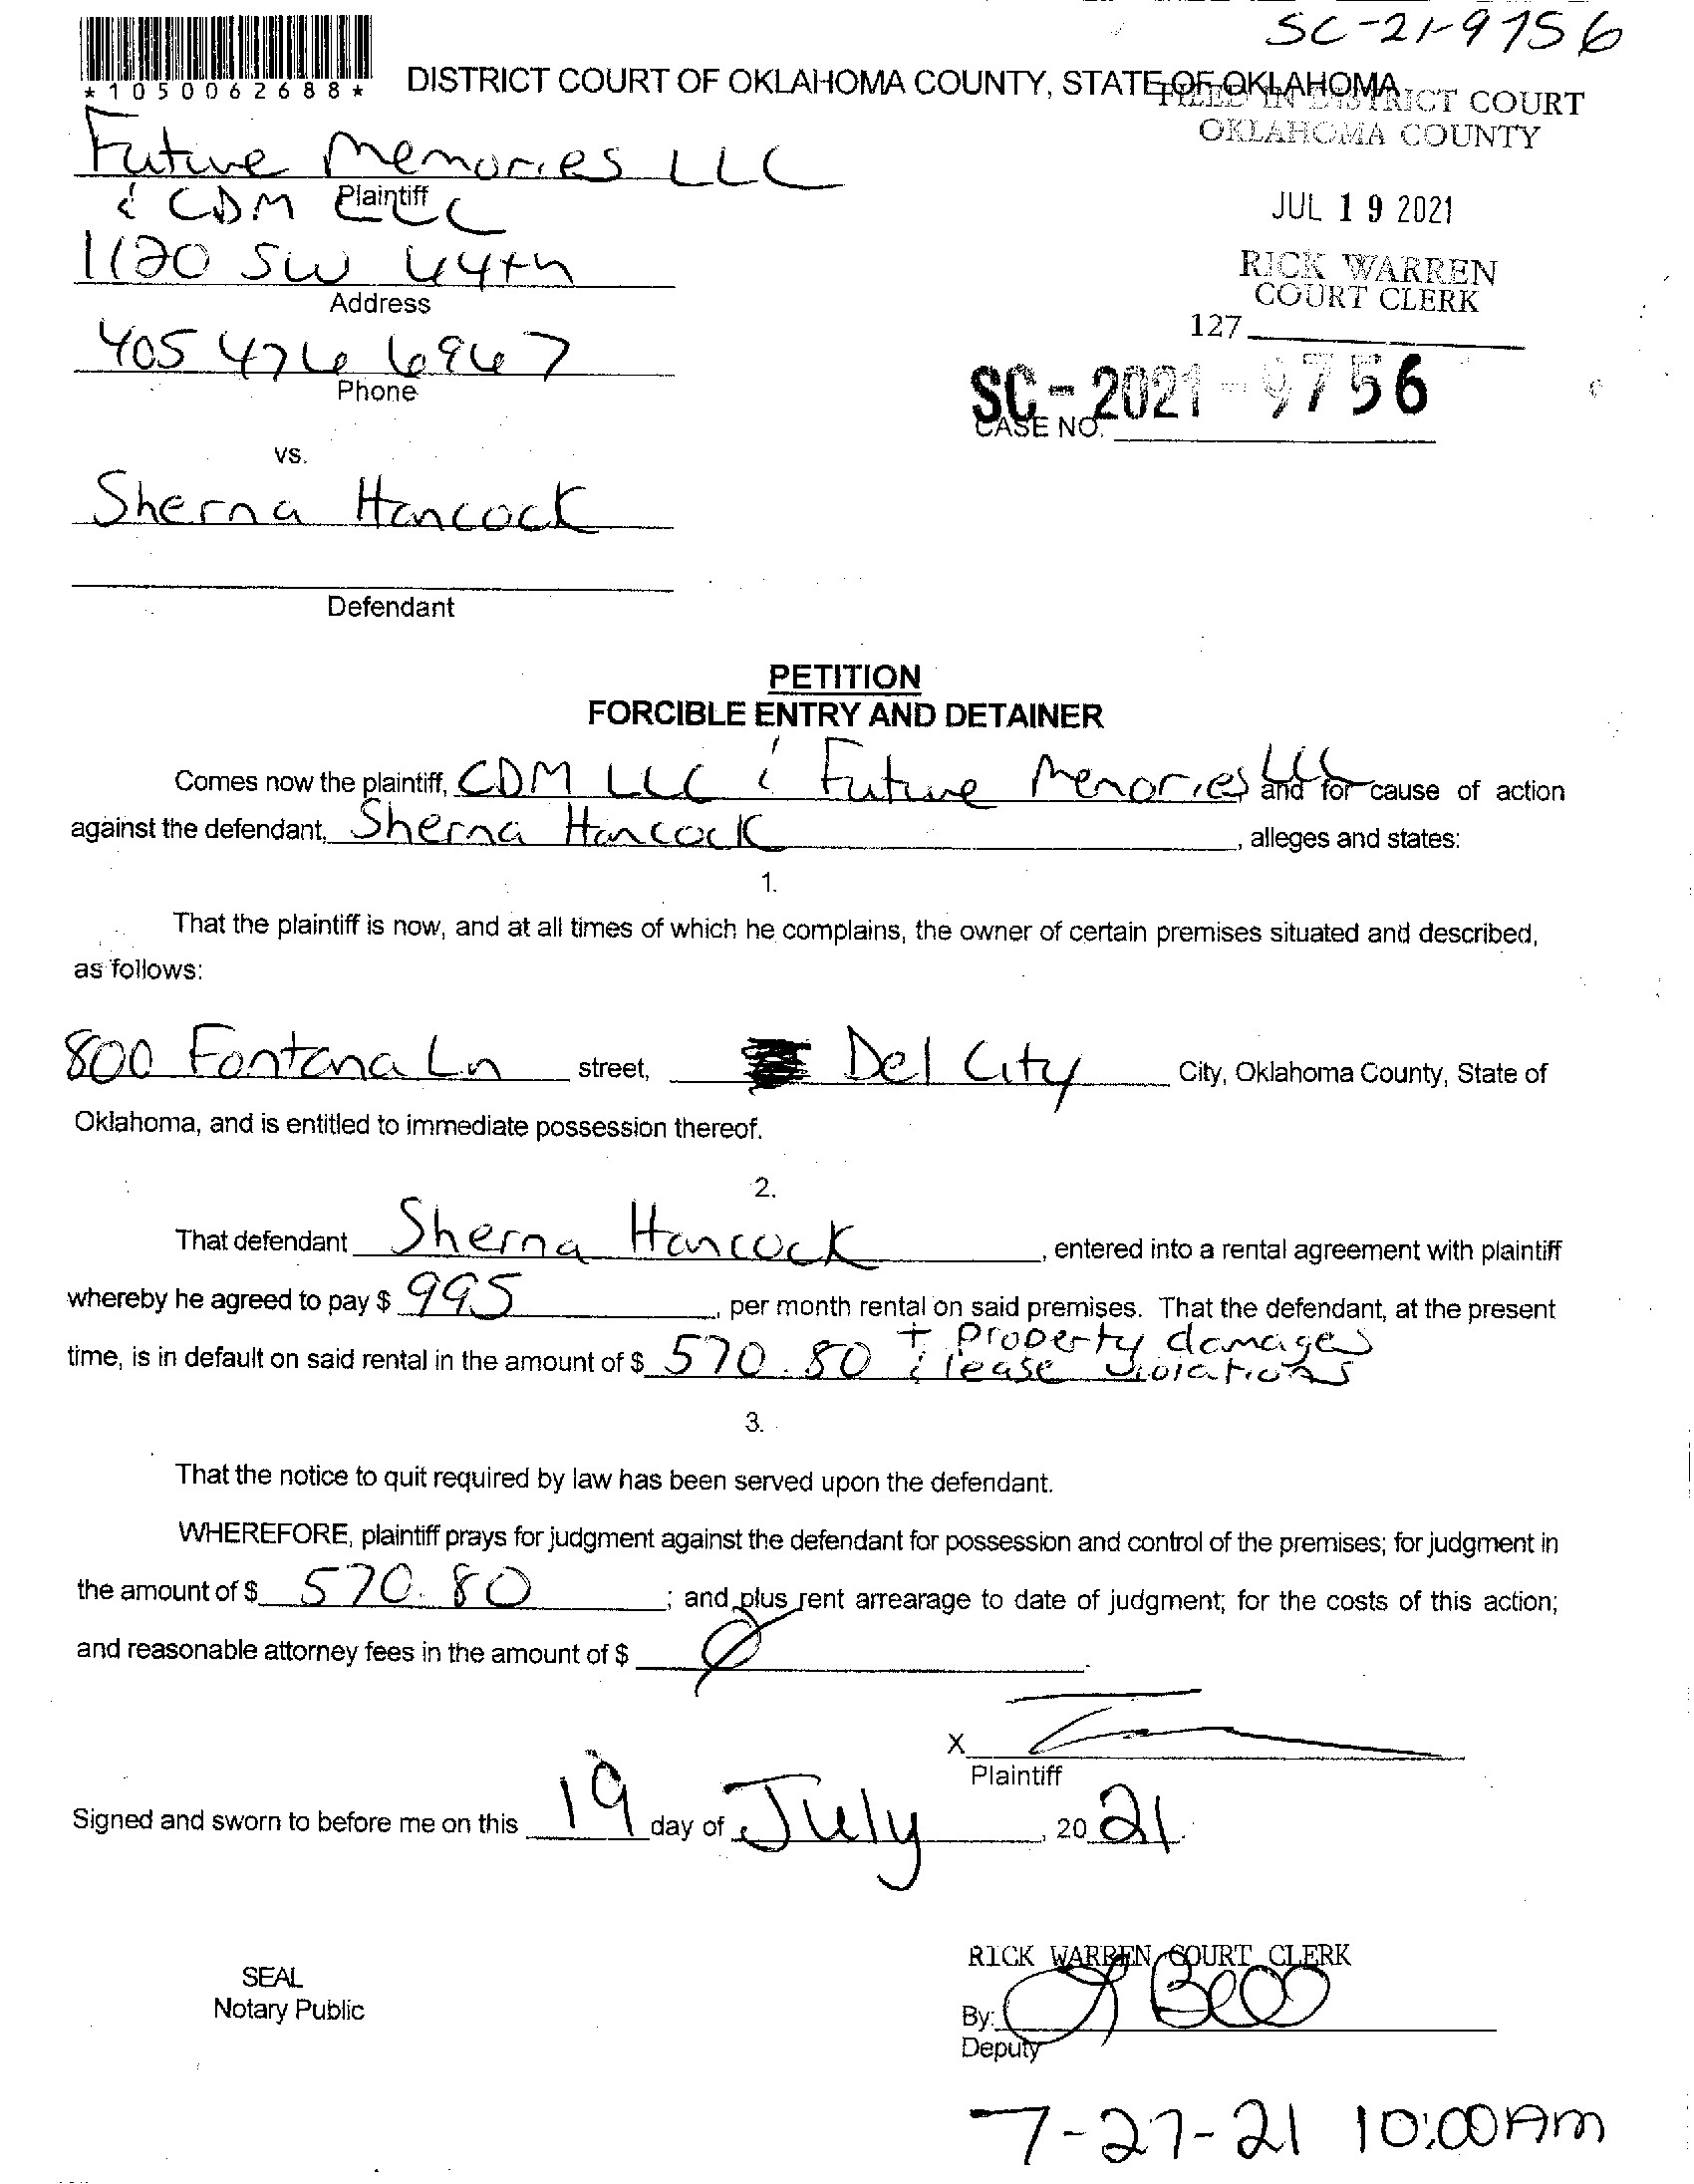 SC-21-9756
*1050062688*
DISTRICT COURT OF OKLAHOMA COUNTY, STATE OF OKLAHOMA
FILED IN DISTRICT COURT
OKLAHOMA COUNTY
Future Memories LLC
Plaintiff
& CDM LLC
JUL 19 2021
1120 SW 44th
Address
RICK WARREN
COURT CLERK
127
405 476 6967
Phone
SC-2021-9756
CASE NO.
vs.
Sherna Hancock
Defendant
PETITION
FORCIBLE ENTRY AND DETAINER
Comes now the plaintiff, CDM LLC & Future Memories LLC and for cause of action
against the defendant, Sherna Hancock, alleges and states:
1.
That the plaintiff is now, and at all times of which he complains, the owner of certain premises situated and described,
as follows:
800 Fontana Ln street, Del City City, Oklahoma County, State of
Oklahoma, and is entitled to immediate possession thereof.
2.
That defendant Sherna Hancock, entered into a rental agreement with plaintiff
whereby he agreed to pay $ 995, per month rental on said premises. That the defendant, at the present
time, is in default on said rental in the amount of $ 570.80 + property damages
& lease violations
3.
That the notice to quit required by law has been served upon the defendant.
WHEREFORE, plaintiff prays for judgment against the defendant for possession and control of the premises; for judgment in
the amount of $ 570.80; and plus rent arrearage to date of judgment; for the costs of this action;
and reasonable attorney fees in the amount of $ Ø.
X
Plaintiff
Signed and sworn to before me on this 19 day of July, 20 21.
SEAL
Notary Public
RICK WARREN COURT CLERK
By:
Deputy
7-27-21 10:00AM